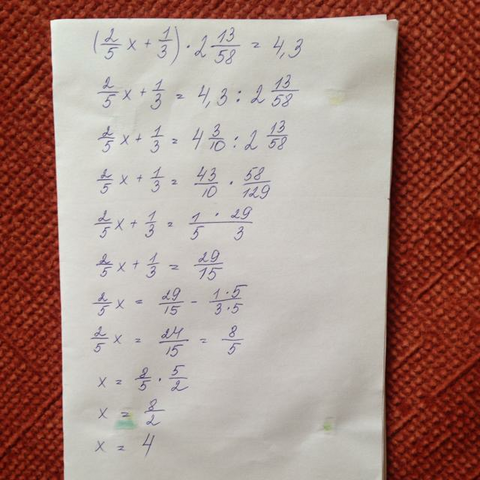 (2/5 x + 1/3) · 2 13/58 = 4,3
2/5 x + 1/3 = 4,3 : 2 13/58
2/5 x + 1/3 = 4 3/10 : 2 13/58
2/5 x + 1/3 = 43/10 · 58/129
2/5 x + 1/3 = 1/5 · 29/3
2/5 x + 1/3 = 29/15
2/5 x = 29/15 - 1·5/3·5
2/5 x = 24/15 = 8/5
x = 8/5 · 5/2
x = 8/2
x = 4